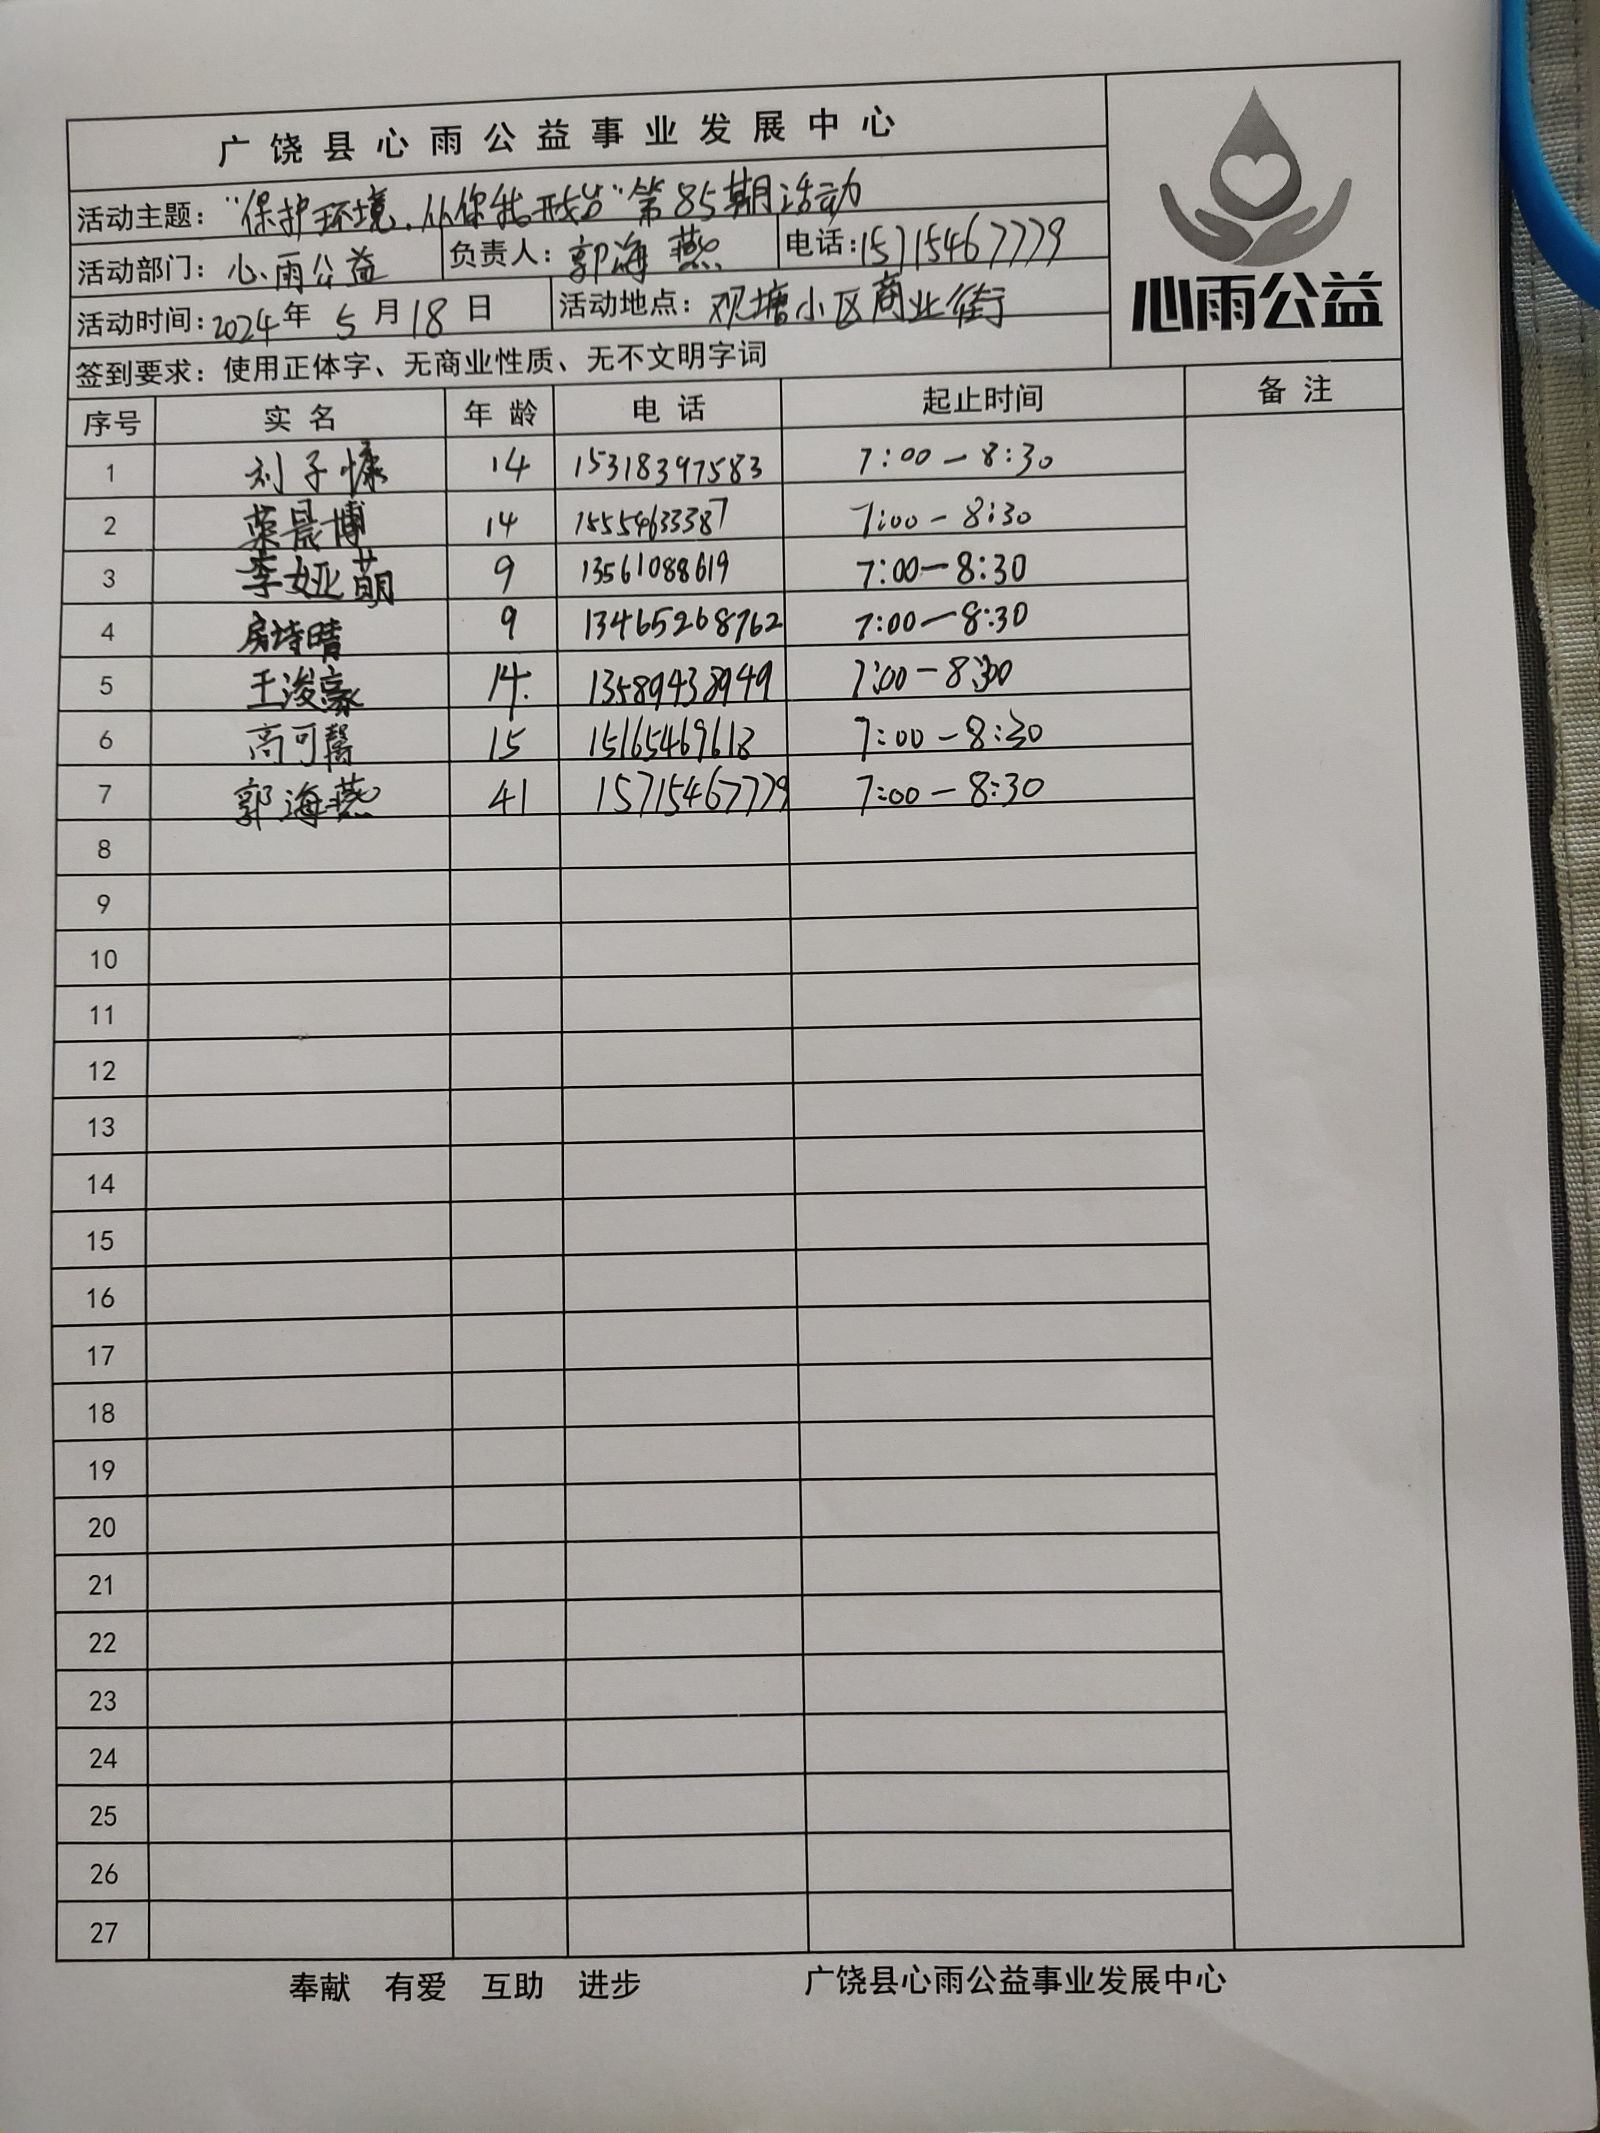 广饶县心雨公益事业发展中心
活动主题："保护环境.从你我开始"第85期活动
活动部门：心雨公益 负责人：郭海燕 电话:15715467779
活动时间:2024年5月18日 活动地点：观塘小区商业街
心雨公益
签到要求：使用正体字、无商业性质、无不文明字词
序号 实名 年龄 电话 起止时间 备注
1 刘子慷 14 15318397583 7:00-8:30
2 荣晨博 14 15554633387 7:00-8:30
3 李娅萌 9 13561088619 7:00-8:30
4 房诗晴 9 13465268762 7:00-8:30
5 王浚豪 14. 13589438949 7:00-8:30
6 高可馨 15 15165469618 7:00-8:30
7 郭海燕 41 15715467779 7:00-8:30
8
9
10
11
12
13
14
15
16
17
18
19
20
21
22
23
24
25
26
27
奉献 有爱 互助 进步 广饶县心雨公益事业发展中心